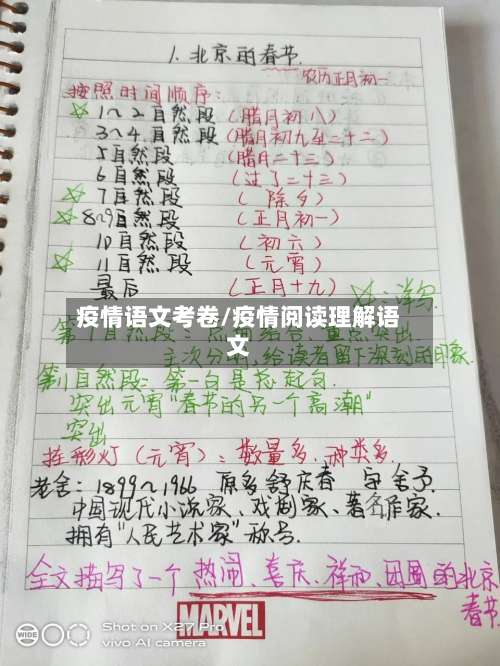 1. 北京的春节
农历正月初一
按照时间顺序:
☆ 1~2自然段 (腊月初八)
3~4自然段 (腊月初九至二十二)
5自然段 (腊月二十三)
6自然段 (过了二十三)
☆ 7自然段 (除夕)
☆ 8~9自然段 (正月初一)
10自然段 (初六)
☆ 11自然段 (元宵)
最后 (正月十九)
☆:详写
疫情语文考卷/疫情阅读理解语
文
主次分明,给读者留下深刻的印象
第11自然段:第一句是总起句
突出元宵"春节的另一个高潮"
突出
挂彩灯(元宵):数量多,种类多,
老舍:1899~1966 原名舒庆春 字舍予
中国现代小说家、戏剧家、著名作家.
拥有"人民艺术家"称号.
全文描写了一个热闹、喜庆、祥和、团圆的北京
春节
MARVEL
WIDE
Shot on X27 Pro
vivo AI camera